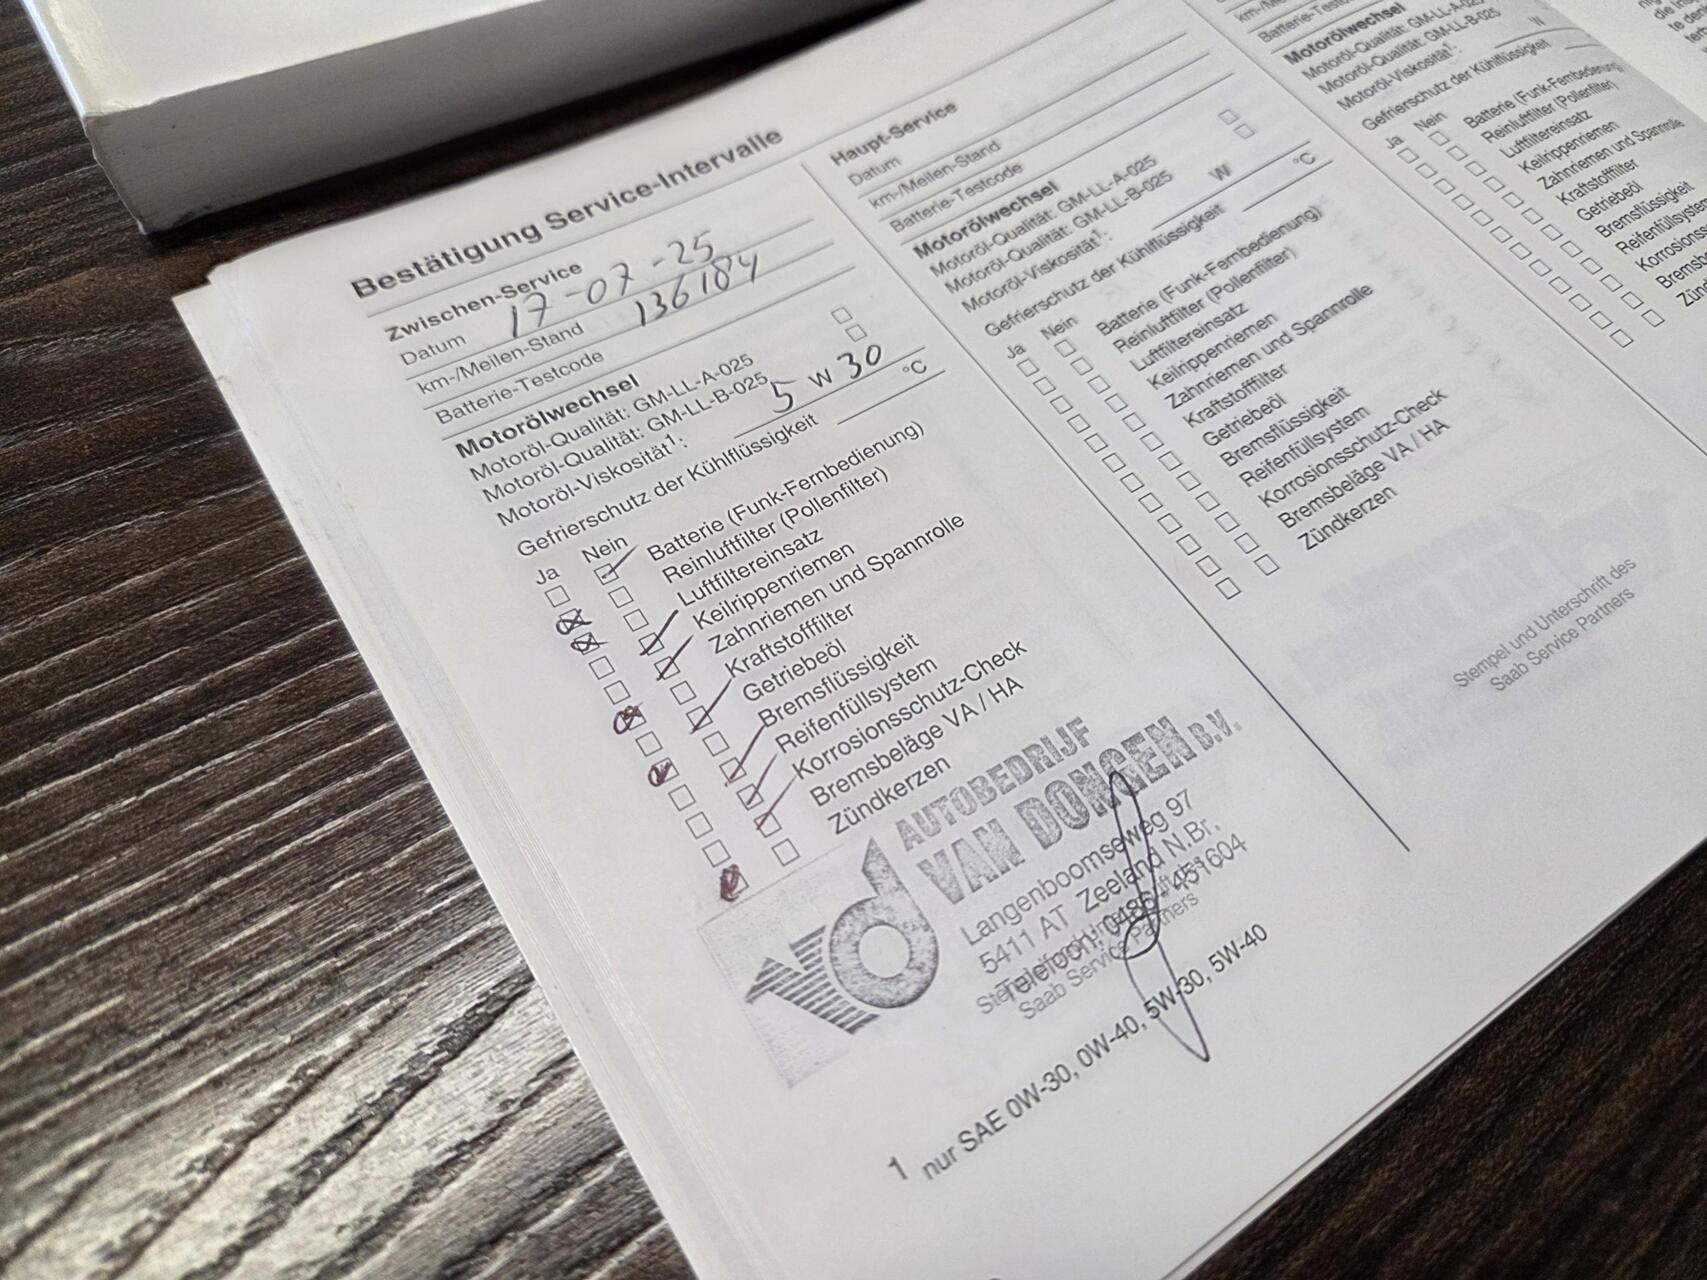 Bestätigung Service-Intervalle
Zwischen-Service
Datum 17-07-25
km-/Meilen-Stand 136184
Batterie-Testcode
Motorölwechsel
Motoröl-Qualität: GM-LL-A-025
Motoröl-Qualität: GM-LL-B-025
Motoröl-Viskosität¹: 5 W 30
Gefrierschutz der Kühlflüssigkeit °C
Ja Nein
Batterie (Funk-Fernbedienung)
Reinluftfilter (Pollenfilter)
Luftfiltereinsatz
Keilrippenriemen
Zahnriemen und Spannrolle
Kraftstofffilter
Getriebeöl
Bremsflüssigkeit
Reifenfüllsystem
Korrosionsschutz-Check
Bremsbeläge VA / HA
Zündkerzen
AUTOBEDRIJF
VAN DONGEN B.V.
Langenboomseweg 97
5411 AT Zeeland N.Br.
Telefoon: 0486 - 451604
Saab Service Partners
1 nur SAE 0W-30, 0W-40, 5W-30, 5W-40
Haupt-Service
Datum
km-/Meilen-Stand
Batterie-Testcode
Motorölwechsel
Motoröl-Qualität: GM-LL-A-025
Motoröl-Qualität: GM-LL-B-025
Motoröl-Viskosität¹: W
Gefrierschutz der Kühlflüssigkeit °C
Ja Nein
Batterie (Funk-Fernbedienung)
Reinluftfilter (Pollenfilter)
Luftfiltereinsatz
Keilrippenriemen
Zahnriemen und Spannrolle
Kraftstofffilter
Getriebeöl
Bremsflüssigkeit
Reifenfüllsystem
Korrosionsschutz-Check
Bremsbeläge VA / HA
Zündkerzen
Stempel und Unterschrift des
Saab Service Partners
Batterie-Testcode
Motorölwechsel
Motoröl-Qualität: GM-LL-A-025
Motoröl-Qualität: GM-LL-B-025
Motoröl-Viskosität¹: W
Gefrierschutz der Kühlflüssigkeit
Ja Nein
Batterie (Funk-Fernbedienung
Reinluftfilter (Pollenfilter)
Luftfiltereinsatz
Keilrippenriemen
Zahnriemen und Spannrolle
Kraftstofffilter
Getriebeöl
Bremsflüssigkeit
Reifenfüllsystem